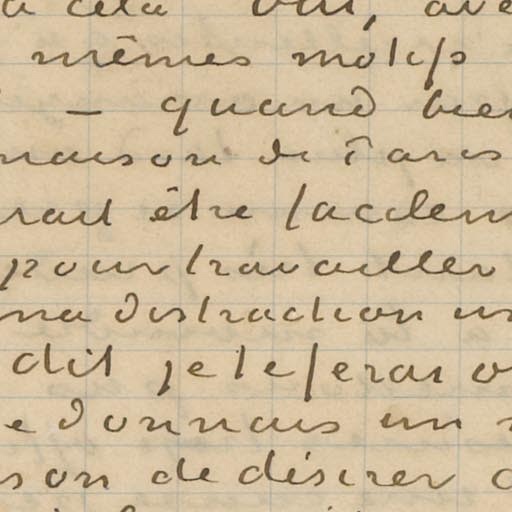 a cela oui, ave
mêmes motifs
— quand bien
maison de Paris
rait être facilem
pour travailler
ma distraction
dit je le ferai
e donnais un
son de désirer